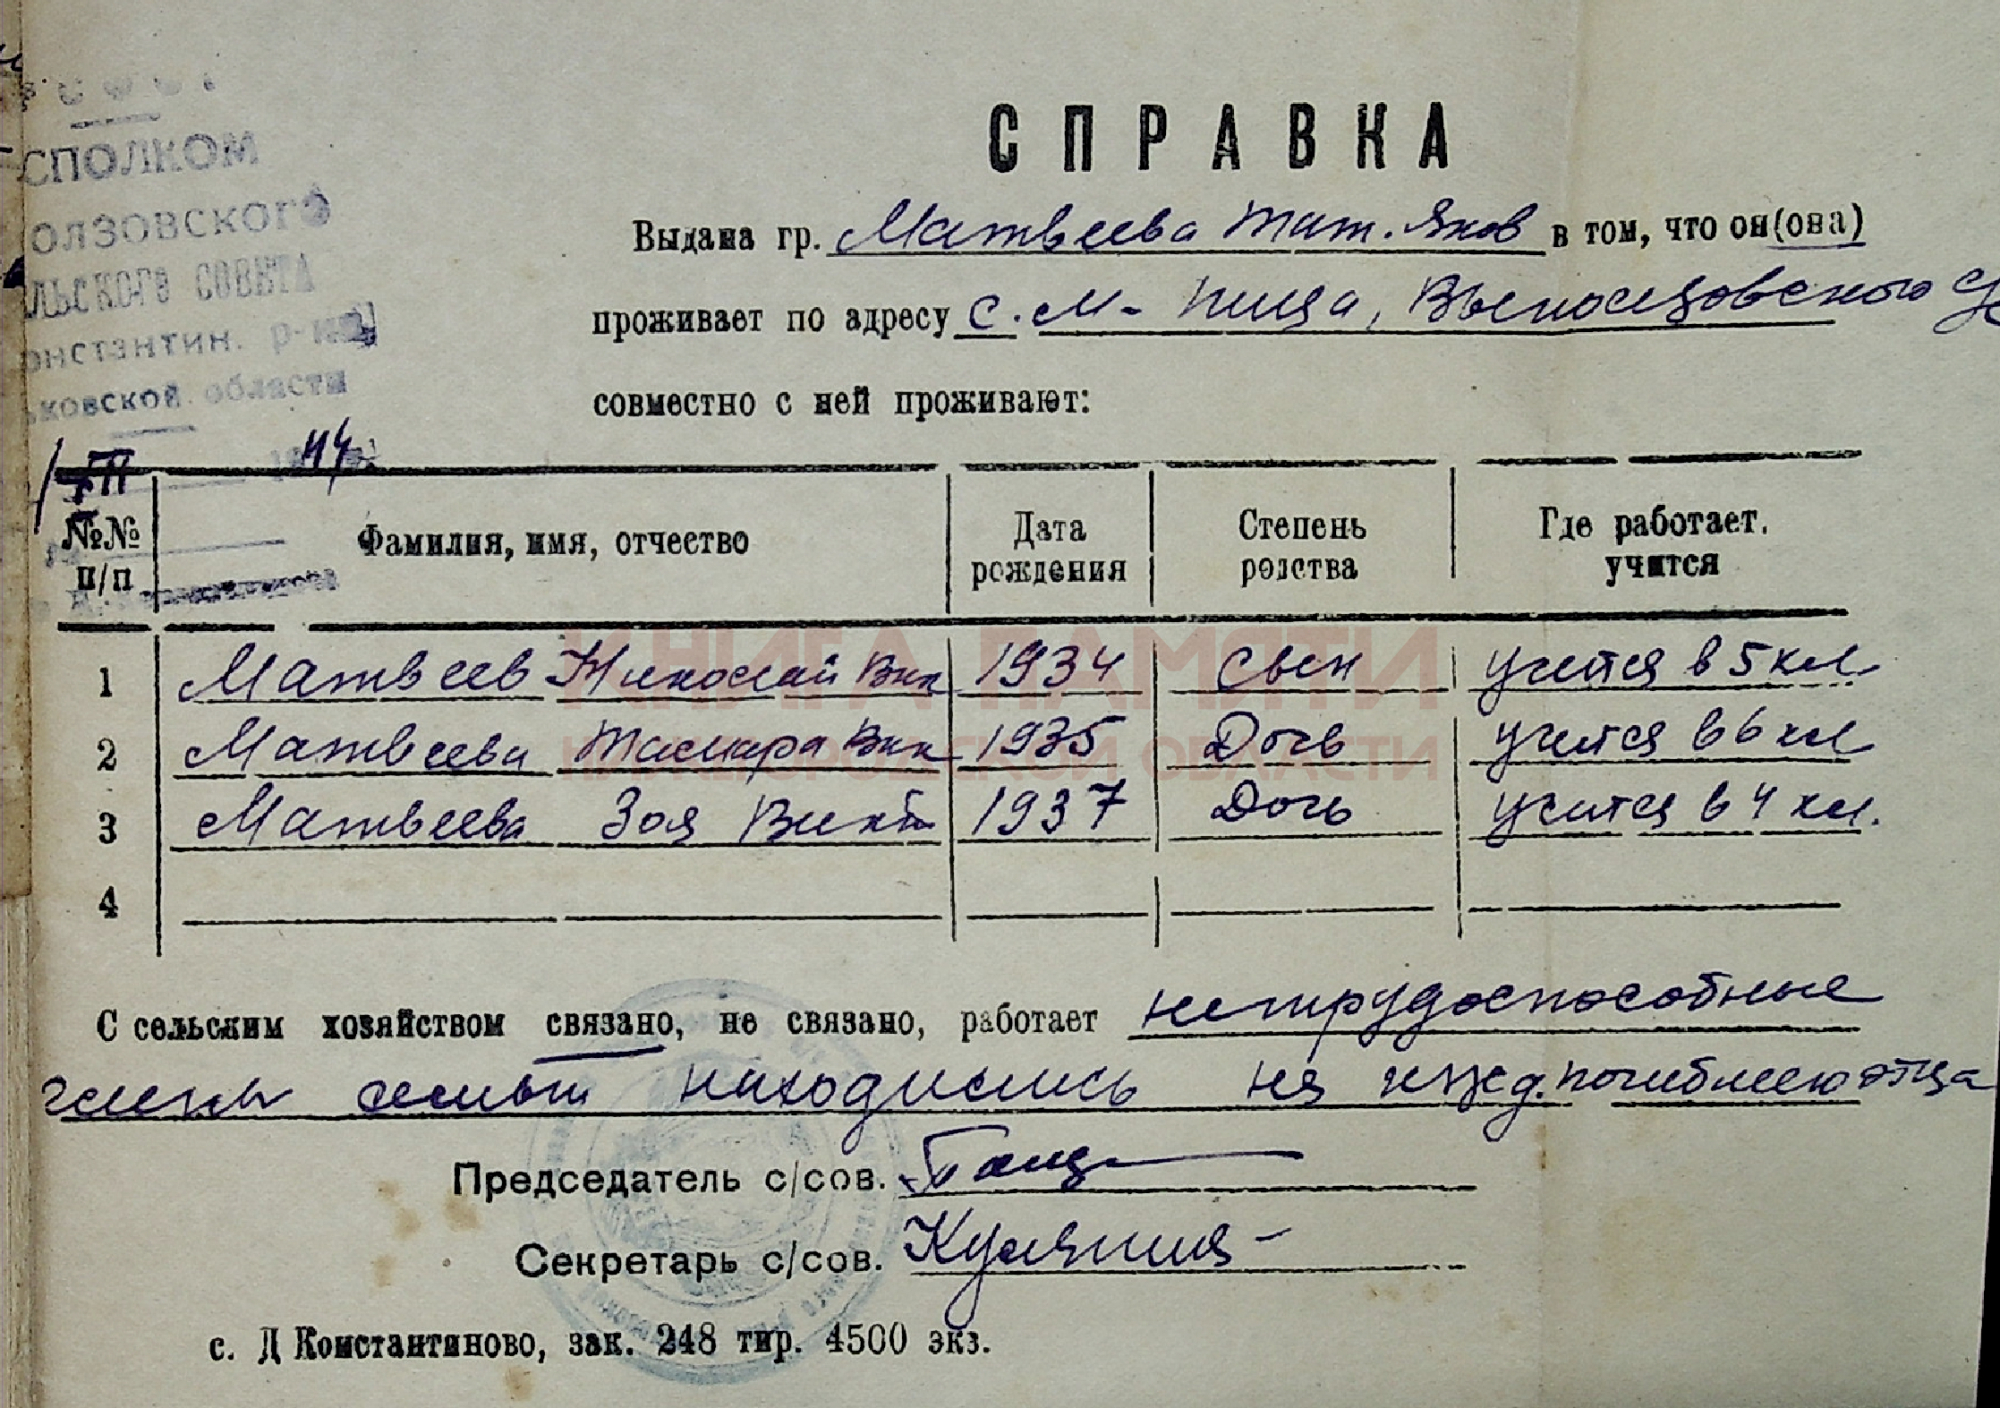 СПОЛКОМ
ОЛЗОВСКОГО
ЛЬСКОГО СОВЕТА
онстантин. р-на
ьковской области
44
СПРАВКА
Выдана гр. Матвеева Тат. Яков в том, что он(она)
проживает по адресу с. М-Пица,
совместно с ней проживают:
№№ п/п Фамилия, имя, отчество Дата рождения Степень родства Где работает. учится
1 Матвеев Николай Вик 1934 Свен учится в 5 кл.
2 Матвеева Тамара Вик 1935 Дочь учится в 6 кл
3 Матвеева Зоя Викт 1937 Дочь учится в 4 кл.
4
КНИГА ПАМЯТИ
НИЖЕГОРОДСКОЙ ОБЛАСТИ
С сельским хозяйством связано, не связано, работает нетрудоспособные
члены семьи находились на ижд. погибшего отца
Председатель с/сов.
Секретарь с/сов.
с. Д Константиново, зак. 248 тир. 4500 экз.